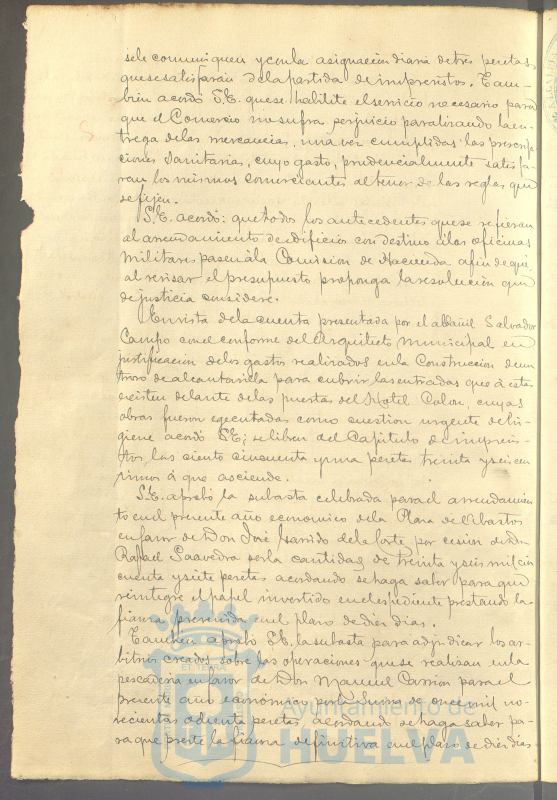 sele comuniquen y con la asignacion diaria de tres pesetas
que se satisfaran de la partida de imprevistos. Tam-
bien acordó S.E. que se habilite el servicio necesario para
que el Comercio no sufra perjuicio paralizando la en-
trega de las mercancias, una vez cumplidas las prescrip-
ciones Sanitarias, cuyo gasto, prudencialmente satisfa-
ran los mismos comerciantes al tenor de las reglas que
se fijen.
S.E. acordó: que todos los antecedentes que se refieran
al arrendamiento de edificios con destino á las oficinas
militares pasen á la Comision de Hacienda a fin de que
al revisar el presupuesto proponga la resolucion que
de justicia considere.
En vista de la cuenta presentada por el albañil Salvador
Campo con el conforme del Arquitecto municipal en
justificacion de los gastos realizados en la Construccion de un
trozo de alcantarilla para cubrir las entradas que á esta
existen delante de las puertas del Hotel Colon, cuyas
obras fueron ejecutadas como cuestion urgente de hi-
giene acordó S.E; se libren del Capitulo de imprevis-
tos, las ciento cincuenta y una pesetas treinta y seis cen-
timos á que asciende.
S.E. aprobó la subasta celebrada para el arrendamien-
to en el presente año economico de la Plaza de Abastos
en favor de Don José Garrido de la Corte por cesion de Don
Rafael Saavedra por la cantidad de treinta y seis mil cin
cuenta y siete pesetas acordando se haga saber para que
reintegre el papel invertido en el espediente prestando la
fianza prevenida en el plazo de diez dias.
Tambien aprobó S.E. la subasta para adjudicar los ar-
bitrios creados sobre las operaciones que se realizan en la
pescaderia en favor de Don Manuel Carrion para el
presente año economico por la suma de once mil no-
vecientas ochenta pesetas acordando se haga saber pa-
ra que preste la fianza definitiva en el plazo de diez dias
Ayuntamiento de
HUELVA